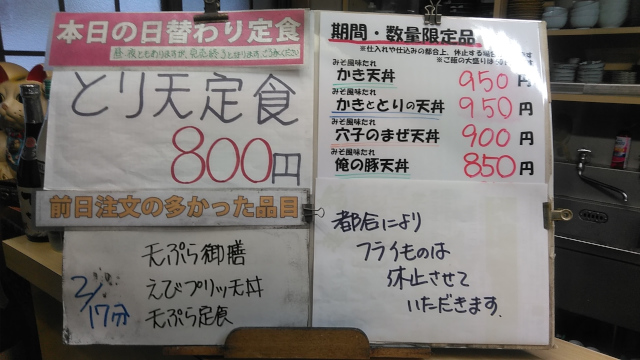 本日の日替わり定食
とり天定食
800円
前日注文の多かった品目
天ぷら御膳
えびプリッ天丼
2/17分 天ぷら定食
期間・数量限定品
※仕入れや仕込みの都合上、休止する場合
※ご飯の大盛りは
みそ風味たれ
かき天丼 950円
みそ風味たれ
かきととりの天丼 950円
みそ風味たれ
穴子のまぜ天丼 900円
みそ風味たれ
俺の豚天丼 850円
都合により
フライものは
休止させて
いただきます.